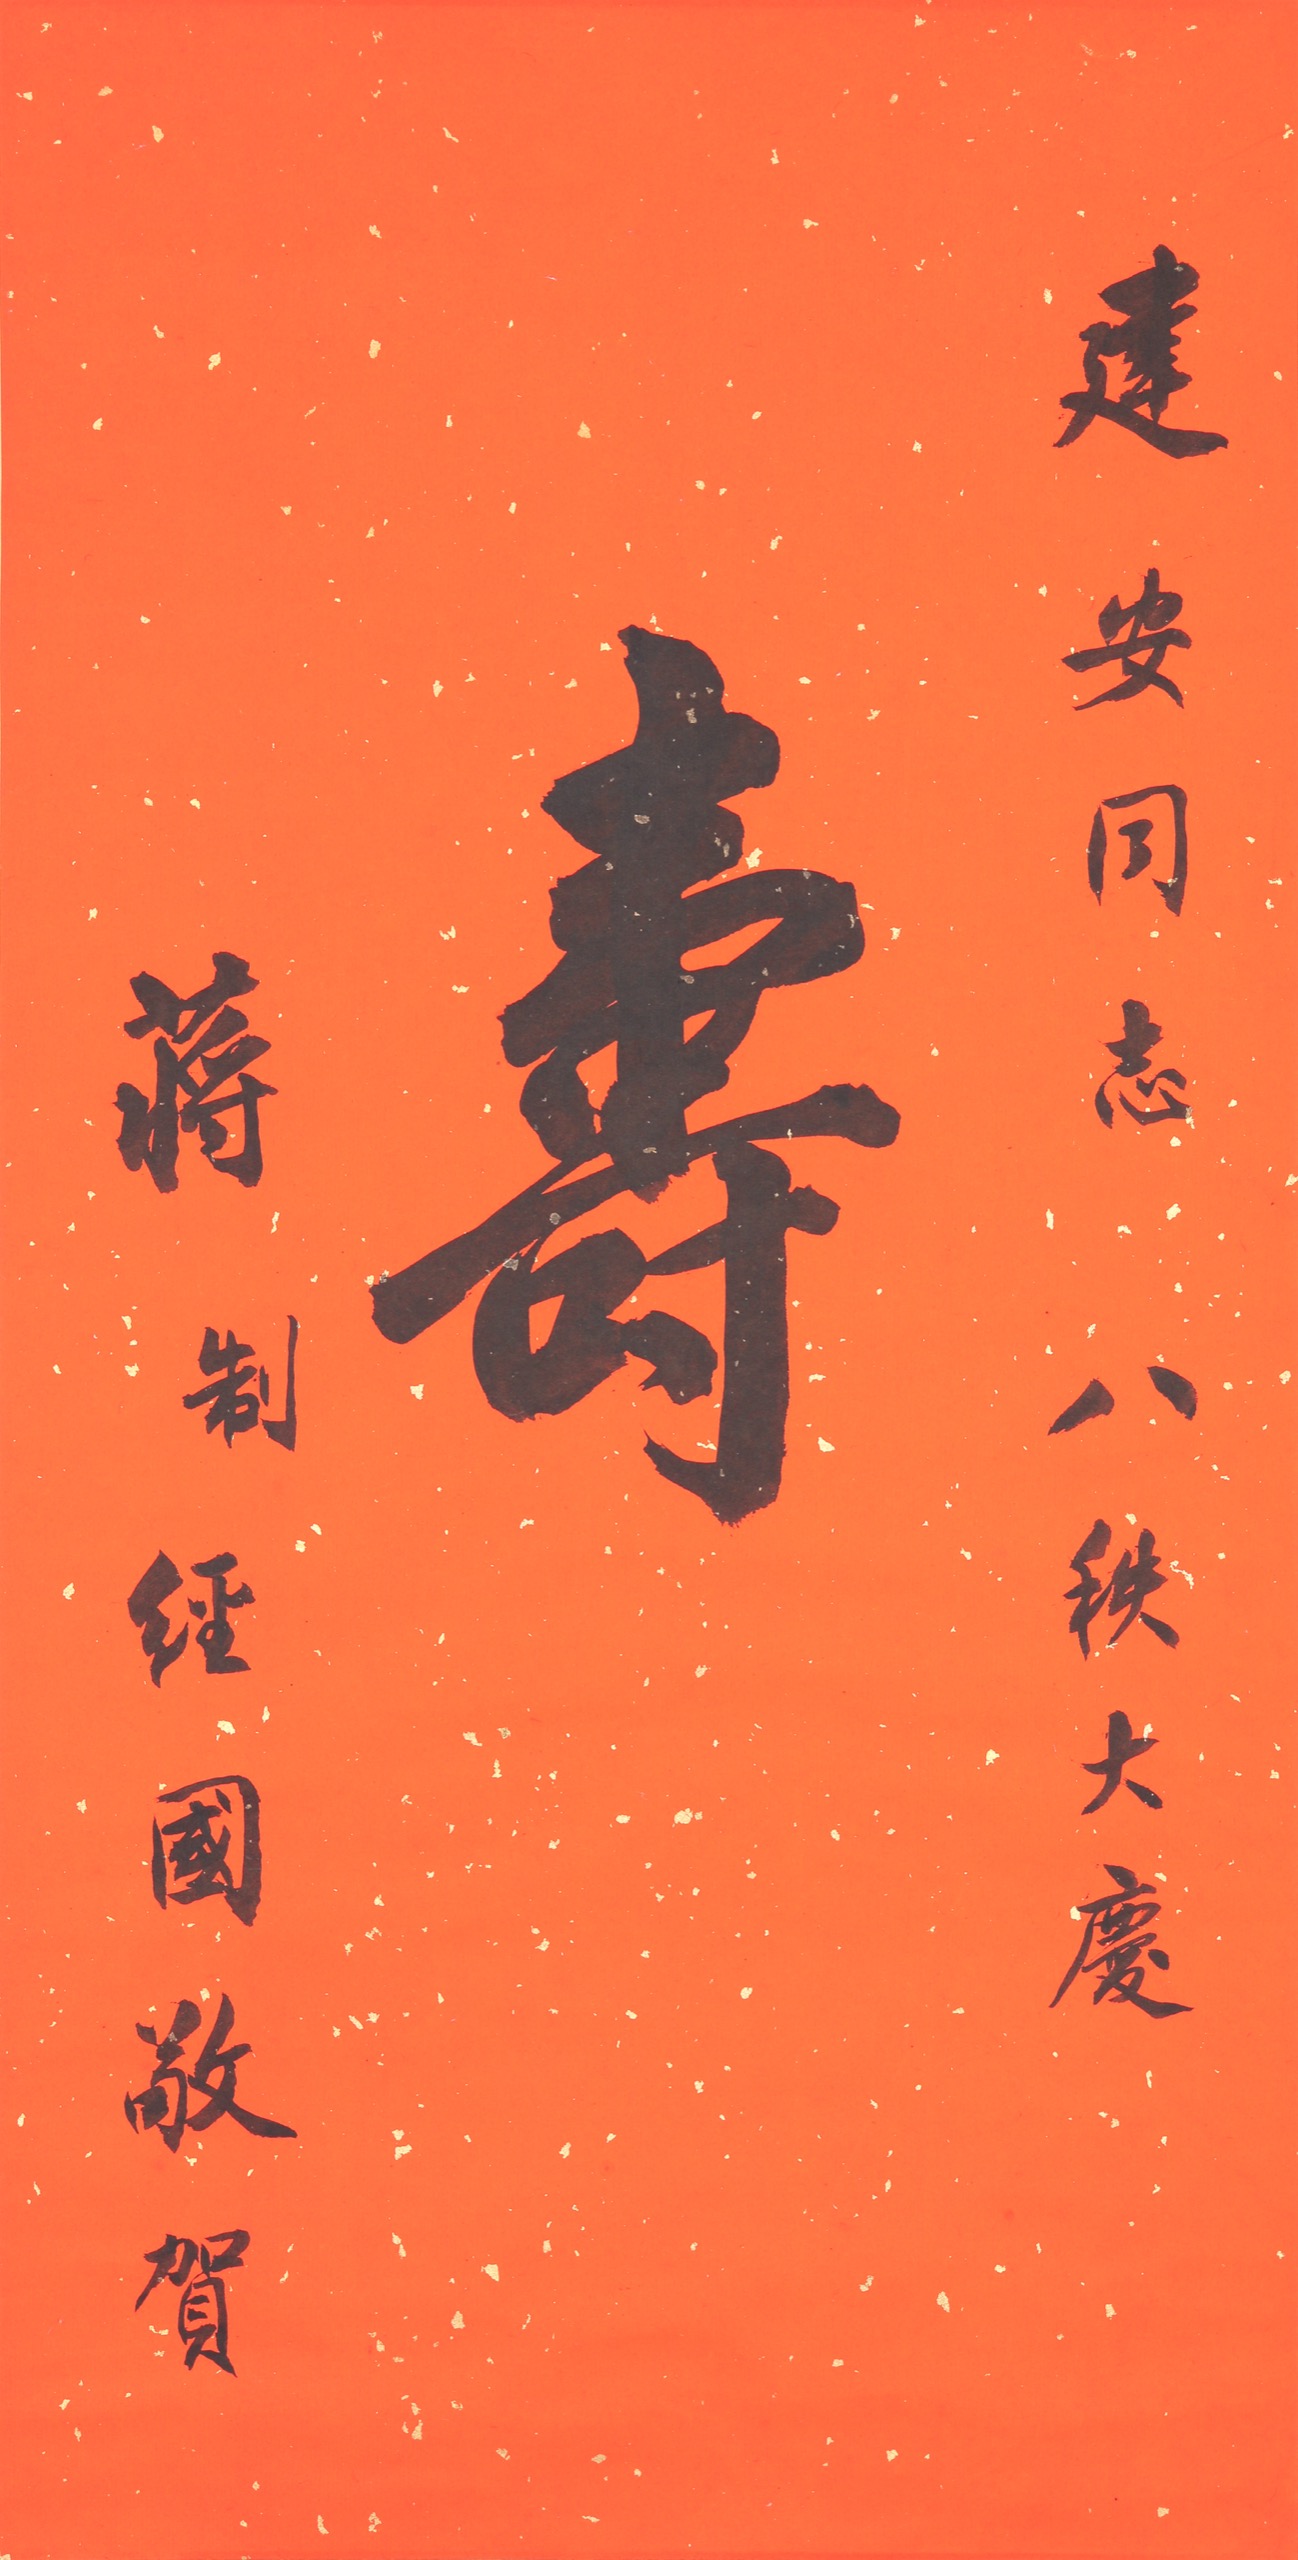 建安同志八秩大慶
壽
蔣制經國敬賀